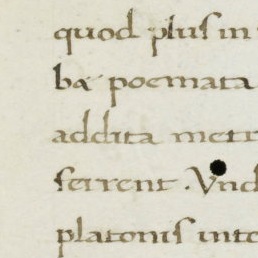 quod pluſ in
ba poemata
addita metr
ferrent . Vnd
platoniſ inte